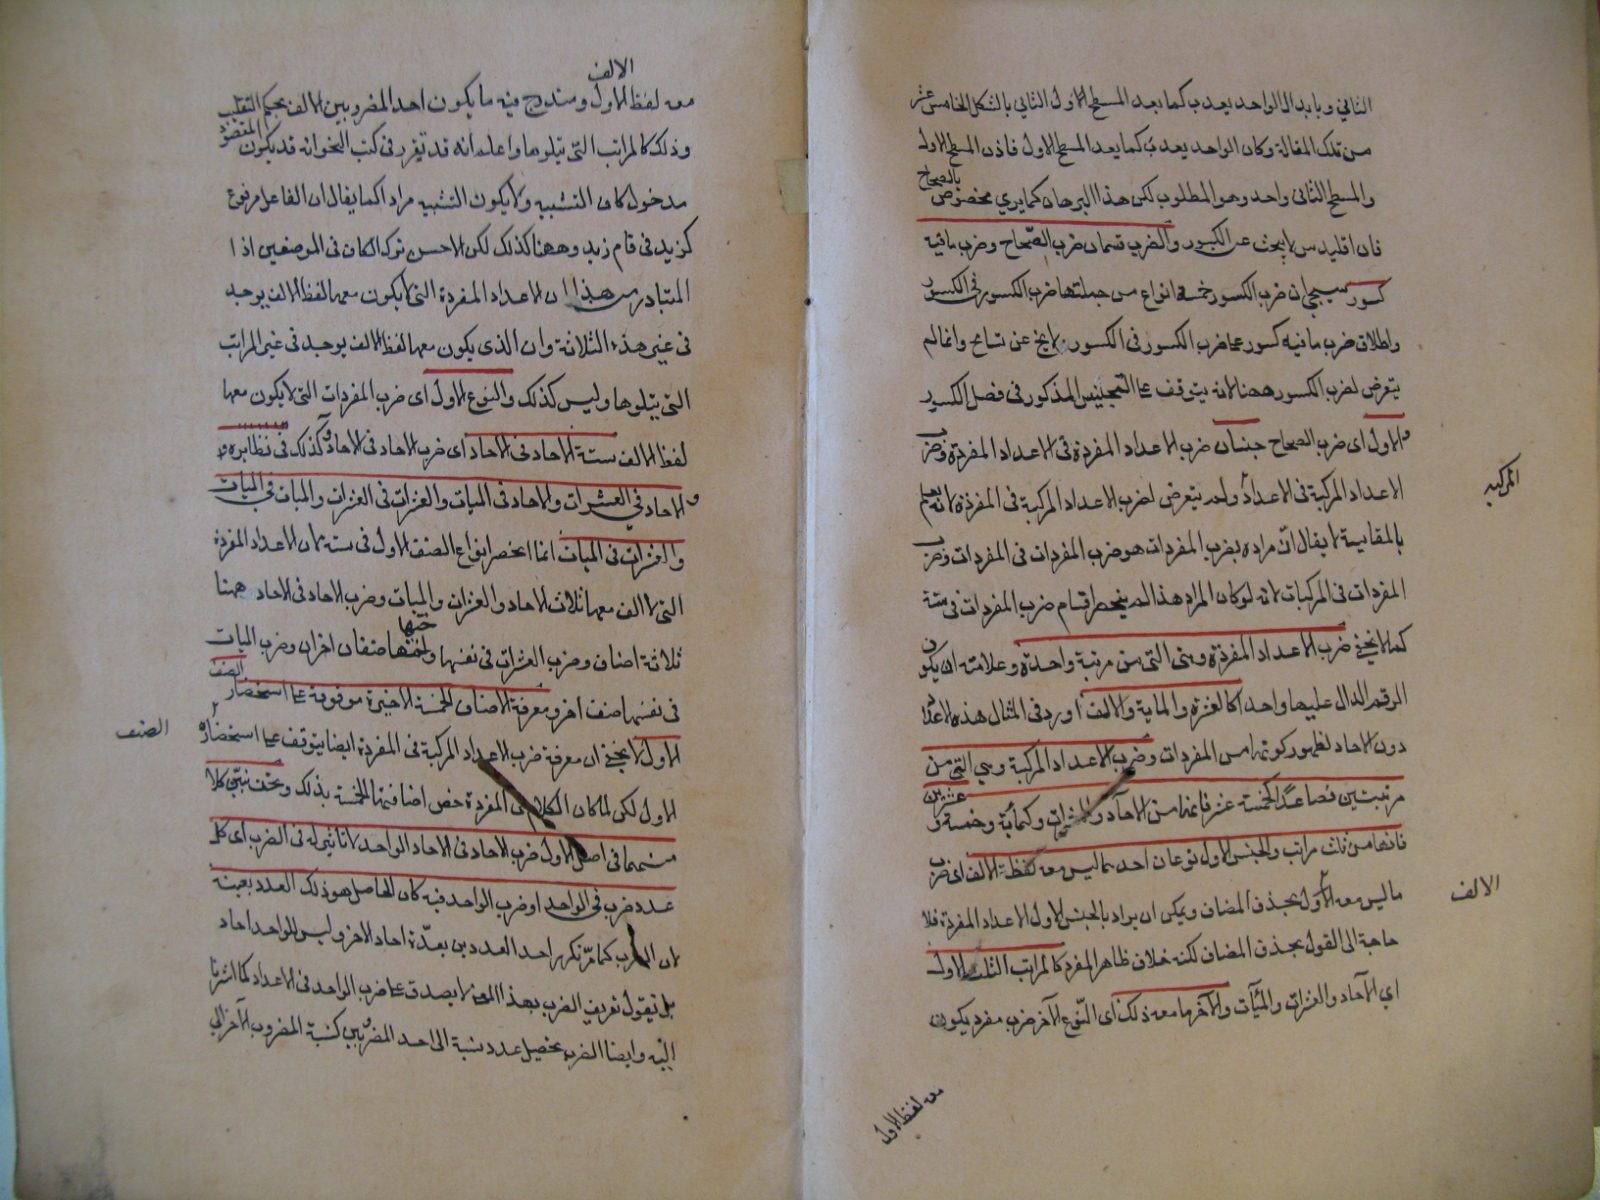 الثاني وبابدال الواحد يعدب كما يعد المسطح الاول الثاني بالشكل الخامس عشر
من تلك المقالة وكان الواحد يعدب كما يعد المسطح الاول فاذن المسطح الاول
والمسطح الثاني واحد وهو المطلوب لكن هذا البرهان كما يرى مخصوص بالصحاح
فان اقليدس لا يبحث عن الكسور والضرب قسمان ضرب الصحاح وضرب ما فيه
كسور سيجئ ان ضرب الكسور خمسة انواع من جملتها ضرب الكسور في الكسور
واطلاق ضرب ما فيه كسور على ضرب الكسور في الكسور لا يخ عن تسامح وانما لم
يتعرض لضرب الكسور ههنا لانه يتوقف على التجنيس المذكور في فصل الكسور
والاول اى ضرب الصحاح جنسان ضرب الاعداد المفردة في الاعداد المفردة وضرب
الاعداد المركبة في الاعداد ولم يتعرض لضرب الاعداد المركبة في المفردة لانه يعلم
المركبة
بالمقايسة لا يقال ان مراده بضرب المفردات هو ضرب المفردات في المفردات وضرب
المفردات في المركبات لانه لو كان المراد هذا لم ينحصر اقسام ضرب المفردات في ستة
كما لا يخفى ضرب الاعداد المفردة وهى التى من مرتبة واحدة وعلامته ان يكون
الرقم الدال عليها واحدا كالعشرة والماية والالف اورد في المثال هذه الاعداد
دون الاحاد لظهور كونها من المفردات وضرب الاعداد المركبة وهى التى من
مرتبتين فصاعدا كخمسة عشر فانها من الآحاد والعشرات وكمائة وخمسة وعشرين
فانها من ثلث مراتب والجنس الاول نوعان احدهما ليس معه لفظة الالف اى ضرب
ما ليس معه الاول بحذف المضاف ويمكن ان يراد بالجنس الاول الاعداد المفردة فلا
الالف
حاجة الى القول بحذف المضاف لكنه خلاف ظاهر المفرد كالمراتب الثلث الاول
اي الآحاد والعشرات والمآت والآخر ما معه ذلك اى النوع الآخر ضرب مفرد يكون
معه لفظ الاول
معه لفظ الاول ومندرج فيه ما يكون احد المضروبين الالف بحكم التغليب
الالف
وذلك كالمراتب التى يتلوها واعلم انه قد تقرر في كتب النحو انه قد يكون المقصود
مدخول كان التشبيه ولا يكون التشبيه مرادا كما يقال ان الفاعل مرفوع
كزيد في قام زيد وههنا كذلك لكن الاحسن ترك الكاف في الموضعين اذ ا
المتبادر من هذا ان الاعداد المفردة التى لا يكون معها لفظ الالف يوجد
في غير هذه الثلاثة وان الذى يكون معها لفظ الالف يوجد في غير المراتب
التى يتلوها وليس كذلك والنوع الاول اى ضرب المفردات التى لا يكون معها
لفظ الالف ستة الاحاد في الاحاد اى ضرب الاحاد في الاحاد وكذلك في نظايره
والاحاد في العشرات والاحاد في الميات والعشرات في العشرات والميات في الميات
والعشرات في الميات انما انحصر انواع الصنف الاول في ستة لان الاعداد المفردة
التى لا الف معها ثلاث الاحاد والعشرات والميات وضرب الاحاد في الاحاد ههنا
ثلاثة اصناف وضرب العشرات في نفسها وفيما صنفان اخران وضرب الميات
في نفسها صنف آخر ومعرفة الاصناف الخمسة الاخيرة موقوفة على استحضار الصنف
الاول لا يخفى ان معرفة ضرب الاعداد المركبة في المفردة ايضا يتوقف على استحضاره
الصنف
الاول لكن لما كان الكلام في المفردة خص اضافتها للخمسة بذلك ونحن نبين كلا
منهما في اصل الاول ضرب الاحاد في الاحاد الواحد لا تاثير له في الضرب اى كل
عدد ضرب في الواحد او ضرب الواحد فيه كان الحاصل هو ذلك العدد بعينه
لان الضرب كما مر تكرير احد العددين بعدة احاد الاخر وليس للواحد احاد
بل نقول تعريف الضرب بهذا المعنى لا يصدق على ضرب الواحد في الاعداد كما اشرنا
اليه وايضا الضرب تحصيل عدد نسبة الى احد المضروبين كنسبة المضروب الآخر الى